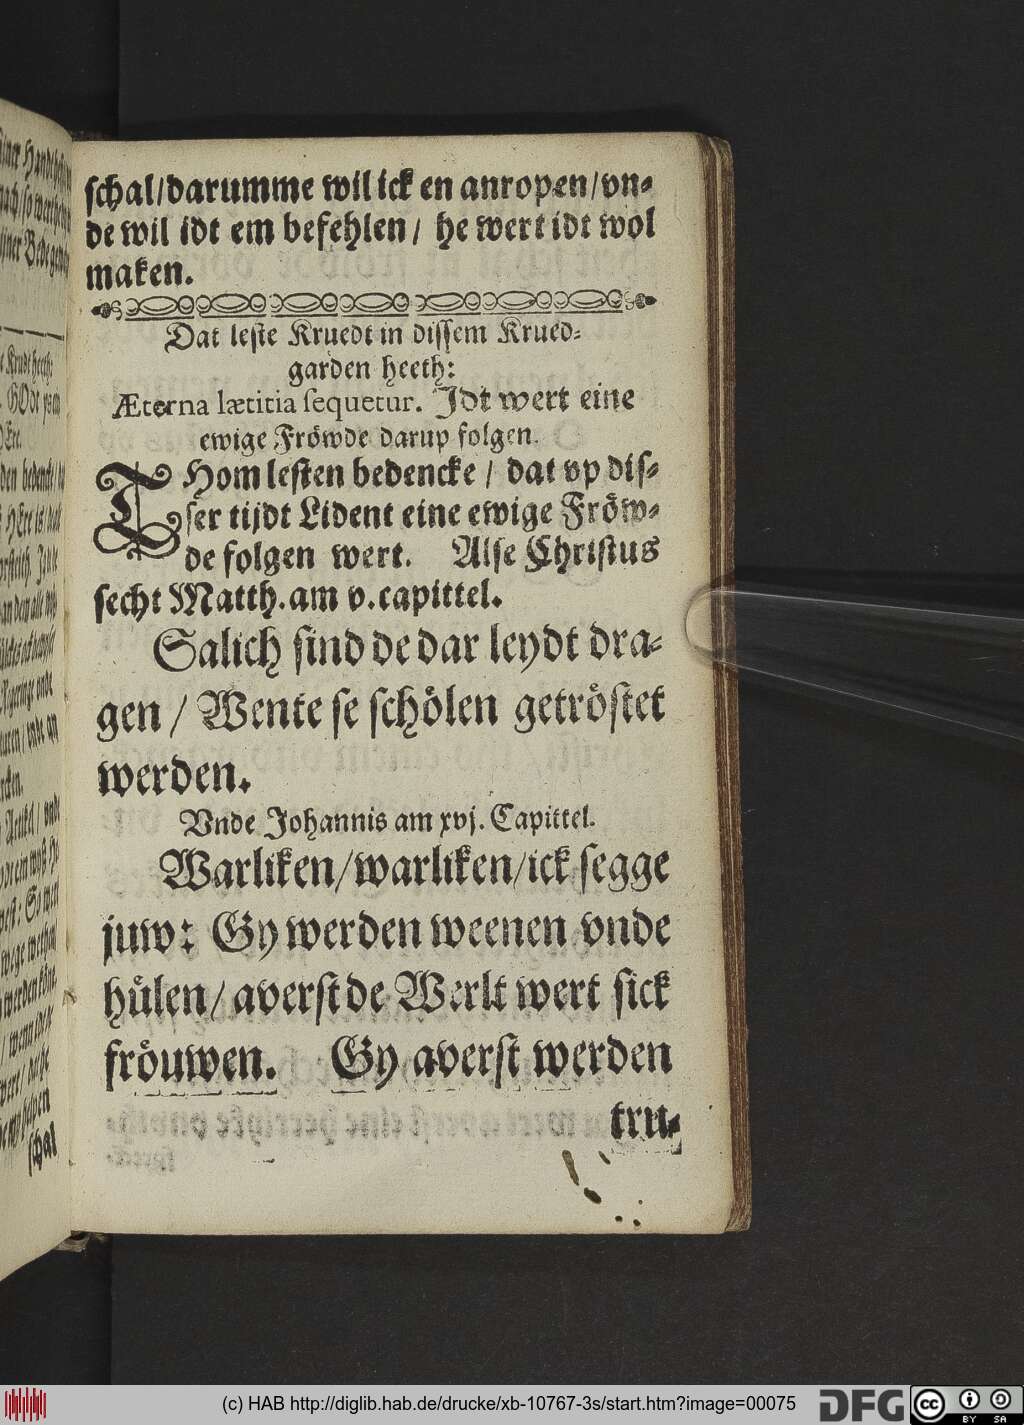 schal/darumme wil ick en anropen/vn⸗
de wil idt em befehlen/ he wert idt wol
maken.
Dat leste Kruedt in dissem Krued⸗
garden heeth:
Æterna lætitia sequetur. Idt wert eine
ewige Fröwde darup folgen.
THom lesten bedencke / dat vp dis⸗
ser tijdt Lident eine ewige Fröw⸗
de folgen wert. Alse Christus
secht Matth. am v. capittel.
Salich sind de dar leydt dra⸗
gen / Wente se schölen getröstet
werden.
Vnde Johannis am xvj. Capittel.
Warliken/warliken/ick segge
juw: Gy werden weenen vnde
hülen/ averst de Werlt wert sick
fröuwen. Gy averst werden
tru⸗
schal
(c) HAB http://diglib.hab.de/drucke/xb-10767-3s/start.htm?image=00075
DFG
cc
BY SA